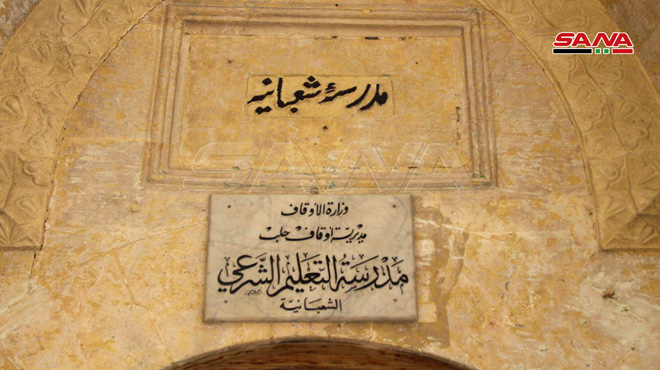 SANA
مدرسۀ شعبانيه
SANA
وزارة الأوقاف
مديرية أوقاف حلب
مدرسة التعليم الشرعي
الشعبانية